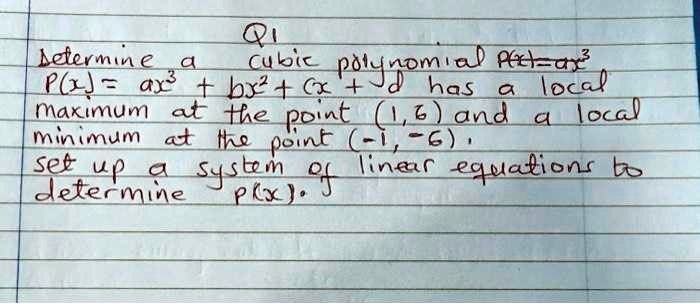 Q1
Determine a cubic polynomial P(x)=ax³
P(x) = ax³ + bx² + cx + d has a local
maximum at the point (1,6) and a local
minimum at the point (-1,-6).
set up a system of linear equations to
determine p(x).